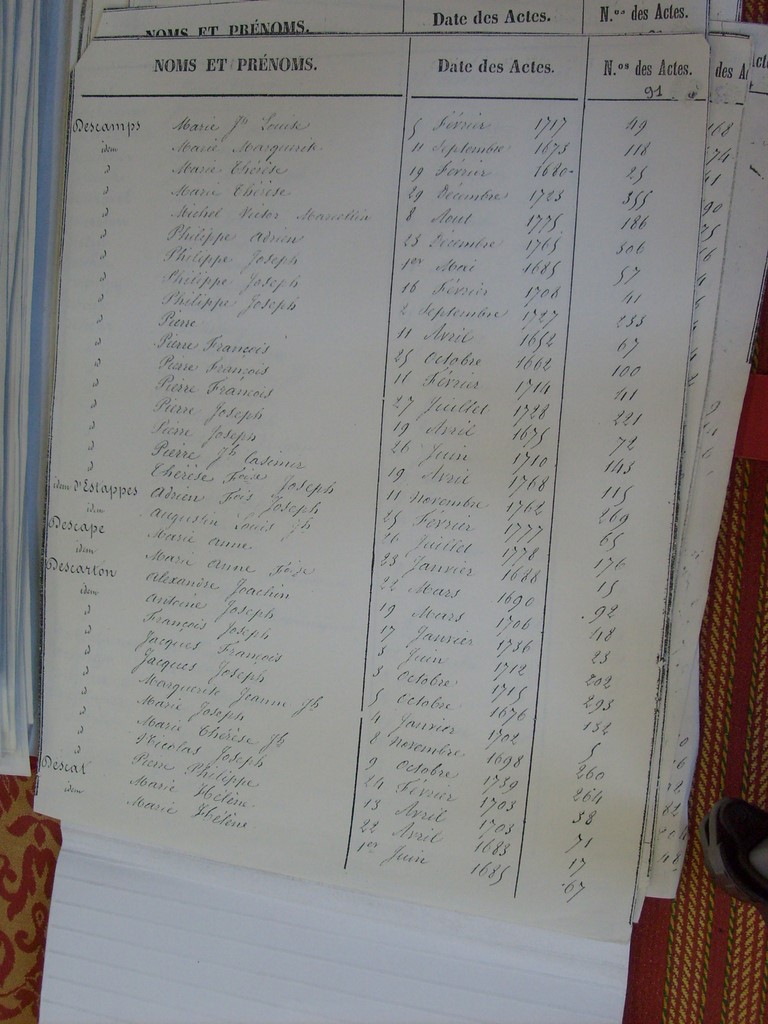 NOMS ET PRÉNOMS. Date des Actes. N.os des Actes.
NOMS ET PRÉNOMS. Date des Actes. N.os des Actes.
91
Descamps Marie Jh Louise 5 Février 1717 49
idem Marie Marguerite 11 Septembre 1673 118
d Marie Thérèse 19 Février 1680 25
d Marie Thérèse 29 Décembre 1723 355
d Michel Victor Marcellin 8 Aout 1775 186
d Philippe Adrien 23 Décembre 1765 306
d Philippe Joseph 1er Mai 1685 57
d Philippe Joseph 16 Février 1706 41
d Philippe Joseph 2 Septembre 1727 233
d Pierre 11 Avril 1652 67
d Pierre François 25 Octobre 1662 100
d Pierre François 11 Février 1714 41
d Pierre François 27 Juillet 1728 221
d Pierre Joseph 19 Avril 1675 72
d Pierre Joseph 26 Juin 1710 143
d Pierre Jh Casimir 19 Avril 1768 115
d Thérèse Foise Joseph 11 Novembre 1762 269
idem d'Estappes Adrien Fois Joseph 25 Février 1777 65
idem Augustin Louis Jh 26 Juillet 1778 176
Descape Marie Anne 23 Janvier 1688 15
idem Marie Anne Foise 22 Mars 1690 92
Descarton Alexandre Joachim 19 Mars 1706 48
idem Antoine Joseph 17 Janvier 1736 23
d François Joseph 3 Juin 1712 202
d Jacques François 3 Octobre 1715 293
d Jacques Joseph 5 Octobre 1676 132
d Marguerite Jeanne Jh 4 Janvier 1702 5
d Marie Joseph 8 Novembre 1698 260
d Marie Thérèse Jh 9 Octobre 1739 264
d Nicolas Joseph 24 Février 1703 38
d Pierre Philippe 13 Avril 1703 71
Descat Marie Hélène 22 Avril 1683 17
idem Marie Hélène 1er Juin 1685 67